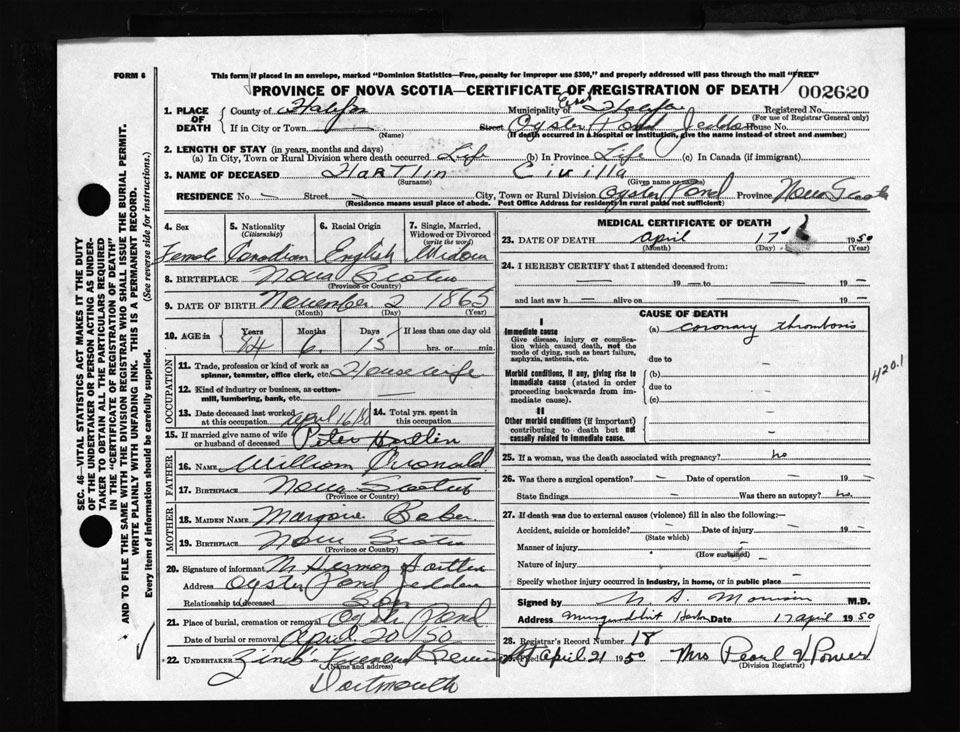 FORM 6
This form if placed in an envelope, marked "Dominion Statistics—Free, penalty for improper use $300," and properly addressed will pass through the mail "FREE"
PROVINCE OF NOVA SCOTIA—CERTIFICATE OF REGISTRATION OF DEATH 002620
1. PLACE OF DEATH
County of Halifax
Municipality of East Halifax
Registered No.
(For use of Registrar General only)
If in City or Town
(Name)
Street Oyster Pond Jeddore House No.
(If death occurred in a hospital or institution, give the name instead of street and number)
2. LENGTH OF STAY (in years, months and days)
(a) In City, Town or Rural Division where death occurred Life (b) In Province Life (c) In Canada (if immigrant)
3. NAME OF DECEASED Hartlin Civilla
(Surname) (Given name or names)
RESIDENCE No. — Street — City, Town or Rural Division Oyster Pond Province Nova Scotia
(Residence means usual place of abode. Post Office Address for residents in rural parts not sufficient)
4. Sex
Female
5. Nationality
(Citizenship)
Canadian
6. Racial Origin
English
7. Single, Married, Widowed or Divorced
(write the word)
Widow
8. BIRTHPLACE Nova Scotia
(Province or Country)
9. DATE OF BIRTH November 2 1865
(Month) (Day) (Year)
10. AGE in
Years 84
Months 6
Days 15
If less than one day old
hrs. or min.
OCCUPATION
11. Trade, profession or kind of work as spinner, teamster, office clerk, etc. Housewife
12. Kind of industry or business, as cotton-mill, lumbering, bank, etc. —
13. Date deceased last worked at this occupation April 16/50
14. Total yrs. spent in this occupation
15. If married give name of wife or husband of deceased Peter Hartlin
FATHER
16. NAME William
17. BIRTHPLACE Nova Scotia
(Province or Country)
MOTHER
18. MAIDEN NAME Margorie Baker
19. BIRTHPLACE Nova Scotia
(Province or Country)
20. Signature of informant M Hermon Hartlin
Address Oyster Pond Jeddore
Relationship to deceased Son
21. Place of burial, cremation or removal Oyster Pond
Date of burial or removal April 20/50
22. UNDERTAKER Zink Funeral Service
(Name and address)
Dartmouth
MEDICAL CERTIFICATE OF DEATH
23. DATE OF DEATH April 17 1950
(Month) (Day) (Year)
24. I HEREBY CERTIFY that I attended deceased from:
— 19 — to — 19 —
and last saw h — alive on — 19 —
CAUSE OF DEATH
I
Immediate cause
Give disease, injury or complication which caused death, not the mode of dying, such as heart failure, asphyxia, asthenia, etc.
(a) coronary thrombosis
due to —
Morbid conditions, if any, giving rise to immediate cause (stated in order proceeding backwards from immediate).
(b) —
due to —
(c) —
II
Other morbid conditions (if important) contributing to death but not causally related to immediate cause.
420.1
25. If a woman, was the death associated with pregnancy? no
26. Was there a surgical operation? — Date of operation — 19 —
State findings — Was there an autopsy? no
27. If death was due to external causes (violence) fill in also the following:—
Accident, suicide or homicide? — Date of injury — 19 —
(State which)
Manner of injury
(How sustained)
Nature of injury —
Specify whether injury occurred in industry, in home, or in public place —
Signed by Morrison M.D.
Address Musquodoboit Harbor Date 17 April 1950
28. Registrar's Record Number 18
Filed April 21 1950 Mrs Pearl V Power
(Division Registrar)
SEC. 46—VITAL STATISTICS ACT MAKES IT THE DUTY
OF THE UNDERTAKER OR PERSON ACTING AS UNDER-
TAKER TO OBTAIN ALL THE PARTICULARS REQUIRED
IN THE "CERTIFICATE OF REGISTRATION OF DEATH"
AND TO FILE THE SAME WITH THE DIVISION REGISTRAR WHO SHALL ISSUE THE BURIAL PERMIT.
WRITE PLAINLY WITH UNFADING INK. THIS IS A PERMANENT RECORD.
Every item of information should be carefully supplied. (See reverse side for instructions.)